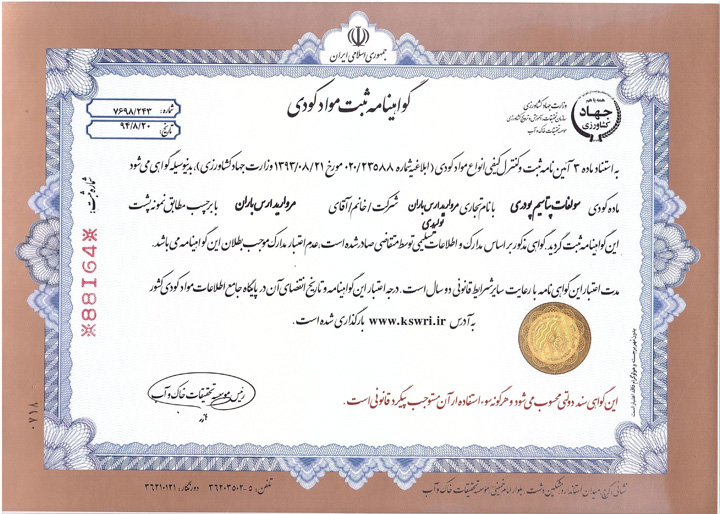 جمهوری اسلامی ایران
گواهینامه ثبت مواد کودی
شماره: ۷۶۹۸/۲۴۳
تاریخ: ۹۴/۸/۲۰
وزارت جهاد کشاورزی
سازمان تحقیقات، آموزش و ترویج کشاورزی
موسسه تحقیقات خاک و آب
همه با هم
جهاد
کشاورزی
به استناد ماده ۳ آئین نامه ثبت و کنترل کیفی انواع مواد کودی (ابلاغیه شماره ۰۲۰/۲۳۵۸۸ مورخ ۱۳۹۳/۰۸/۲۱ وزارت جهاد کشاورزی)، بدینوسیله گواهی می شود
ماده کودی سولفات پتاسیم پودری با نام تجاری مروارید ارس باران تولیدی شرکت / خانم / آقای مروارید ارس باران با برچسب مطابق نمونه پشت
این گواهینامه ثبت گردید. گواهی مذکور بر اساس مدارک و اطلاعات تسلیمی توسط متقاضی صادر شده است. عدم اعتبار مدارک موجب بطلان این گواهینامه می باشد.
مدت اعتبار این گواهی نامه با رعایت سایر شرایط قانونی دو سال است. درجه اعتبار این گواهینامه و تاریخ انقضای آن در پایگاه جامع اطلاعات مواد کودی کشور
به آدرس www.kswri.ir بارگذاری شده است.
این گواهی سند دولتی محسوب می شود و هرگونه سوء استفاده از آن مستوجب پیگرد قانونی است.
رئیس موسسه تحقیقات خاک و آب
شماره ثبت:
※88164※
بدون مهر برجسته و هولوگرام فاقد اعتبار است
۰۷۱۸
نشانی: کرج، میدان استاندارد، مشکین دشت، بلوار امام خمینی، موسسه تحقیقات خاک و آب
تلفن: ۵-۳۶۲۰۳۵۰۲ دورنگار: ۳۶۲۱۰۱۲۱